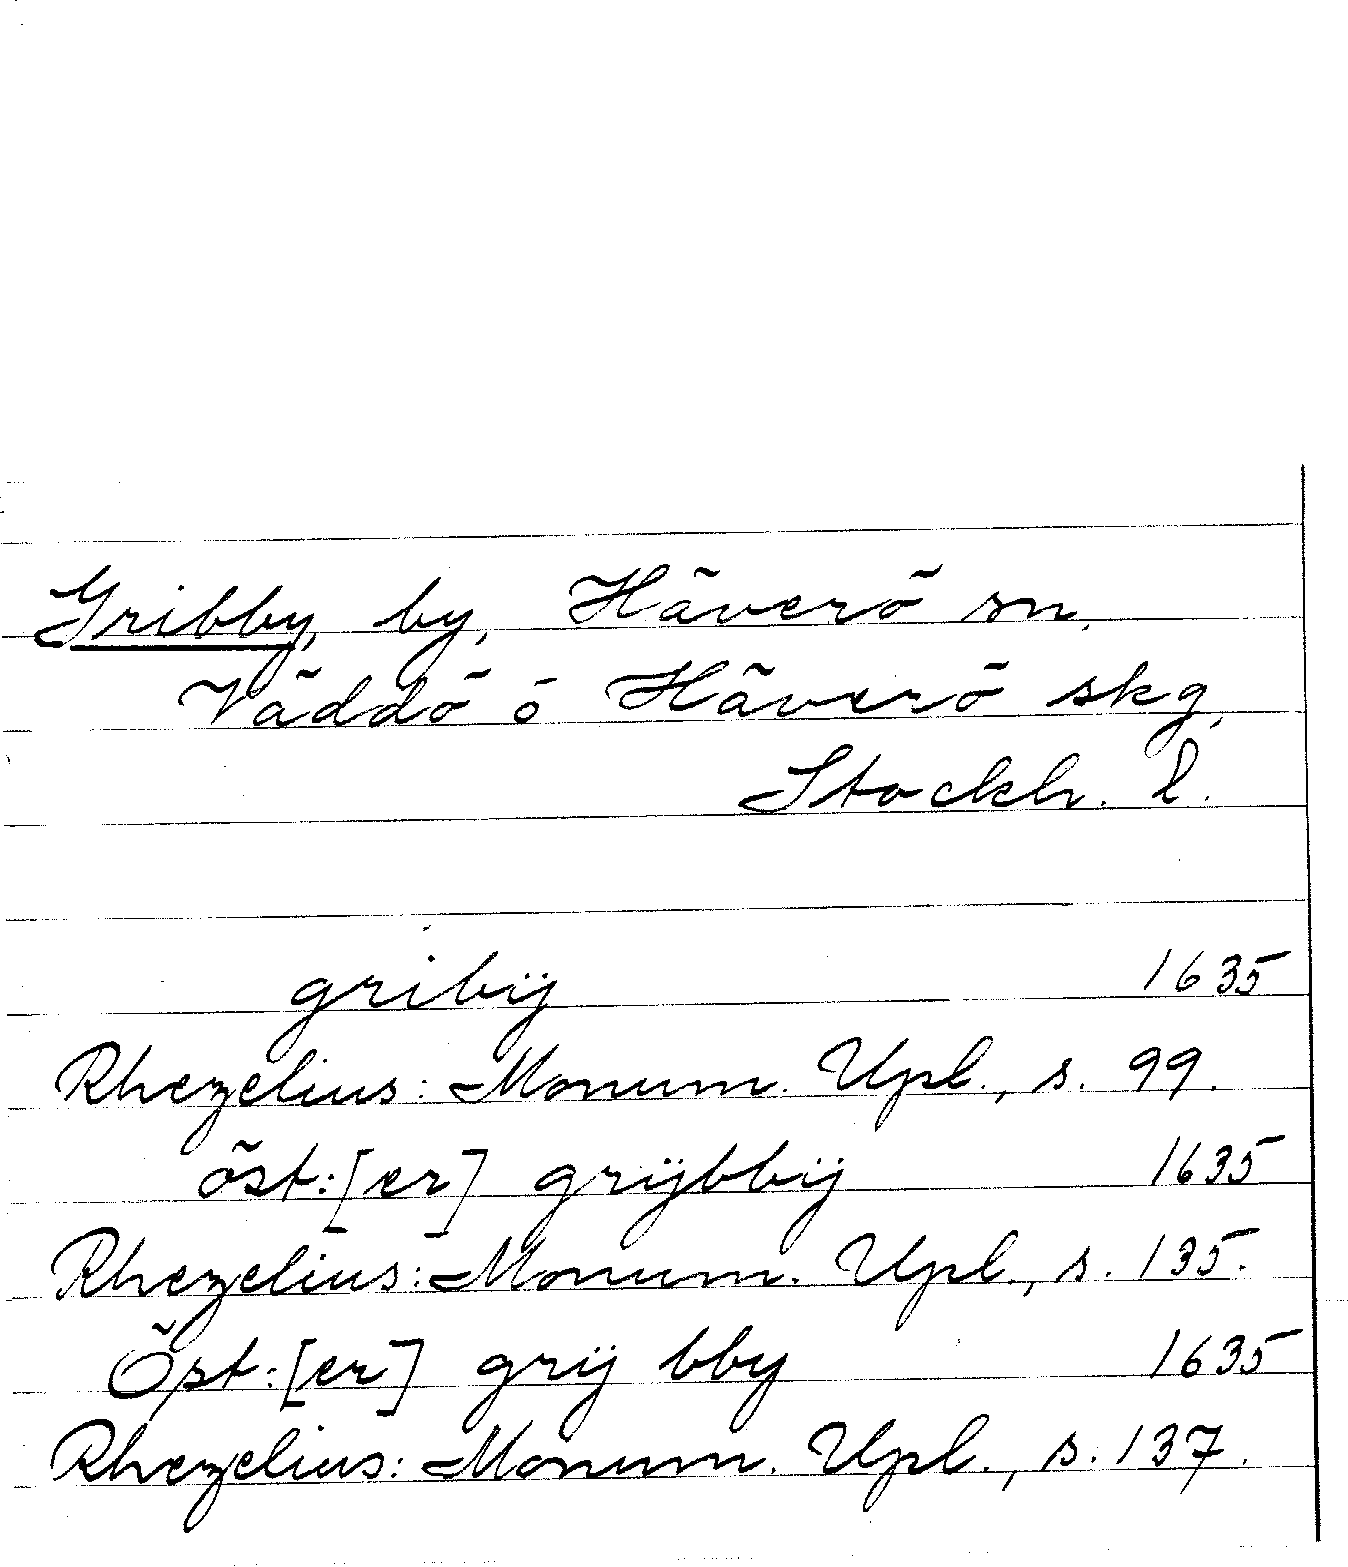 Gribby, by, Häverö sn,
Väddö o Häverö skg,
Stockh. l.
gribij 1635
Rhezelius: Monum. Upl., s. 99.
öst:[er] grijbbij 1635
Rhezelius: Monum. Upl., s. 135.
Öst:[er] grij bby 1635
Rhezelius: Monum. Upl., s. 137.